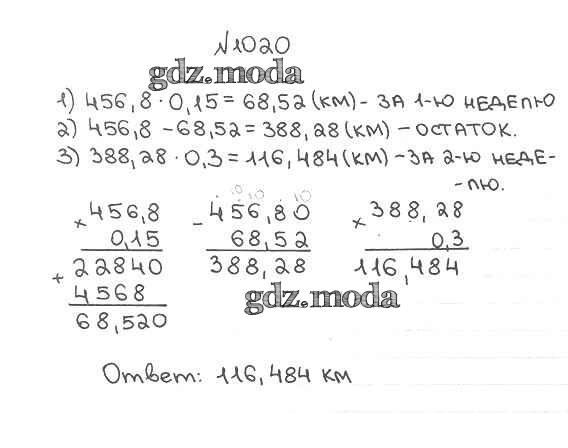 №1020
gdz.moda
1) 456,8 · 0,15 = 68,52 (км) - ЗА 1-Ю НЕДЕЛЮ
2) 456,8 - 68,52 = 388,28 (км) - ОСТАТОК.
3) 388,28 · 0,3 = 116,484 (км) - ЗА 2-Ю НЕДЕ-
-ЛЮ.
10 10 10
× 456,8 - 456,80 × 388,28
0,15 68,52 0,3
+ 22840 388,28 116,484
4568
gdz.moda
68,520
Ответ: 116,484 км